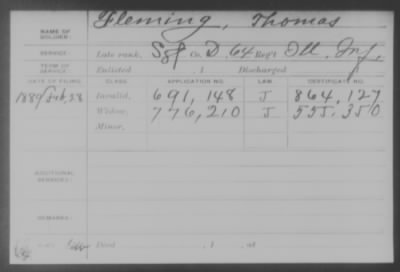 NAME OF SOLDIER: Fleming, Thomas
SERVICE: Late rank, Sgt Co. D, 64 Reg't Ill. Inf.
TERM OF SERVICE: Enlisted , 1 Discharged , 1
DATE OF FILING. CLASS. APPLICATION NO. LAW. CERTIFICATE NO.
1889 Feb, 28 Invalid, 691,148 J 864,127
Widow, 776,210 J 555,350
Minor,
ADDITIONAL SERVICES:
REMARKS:
Died , 1 , at